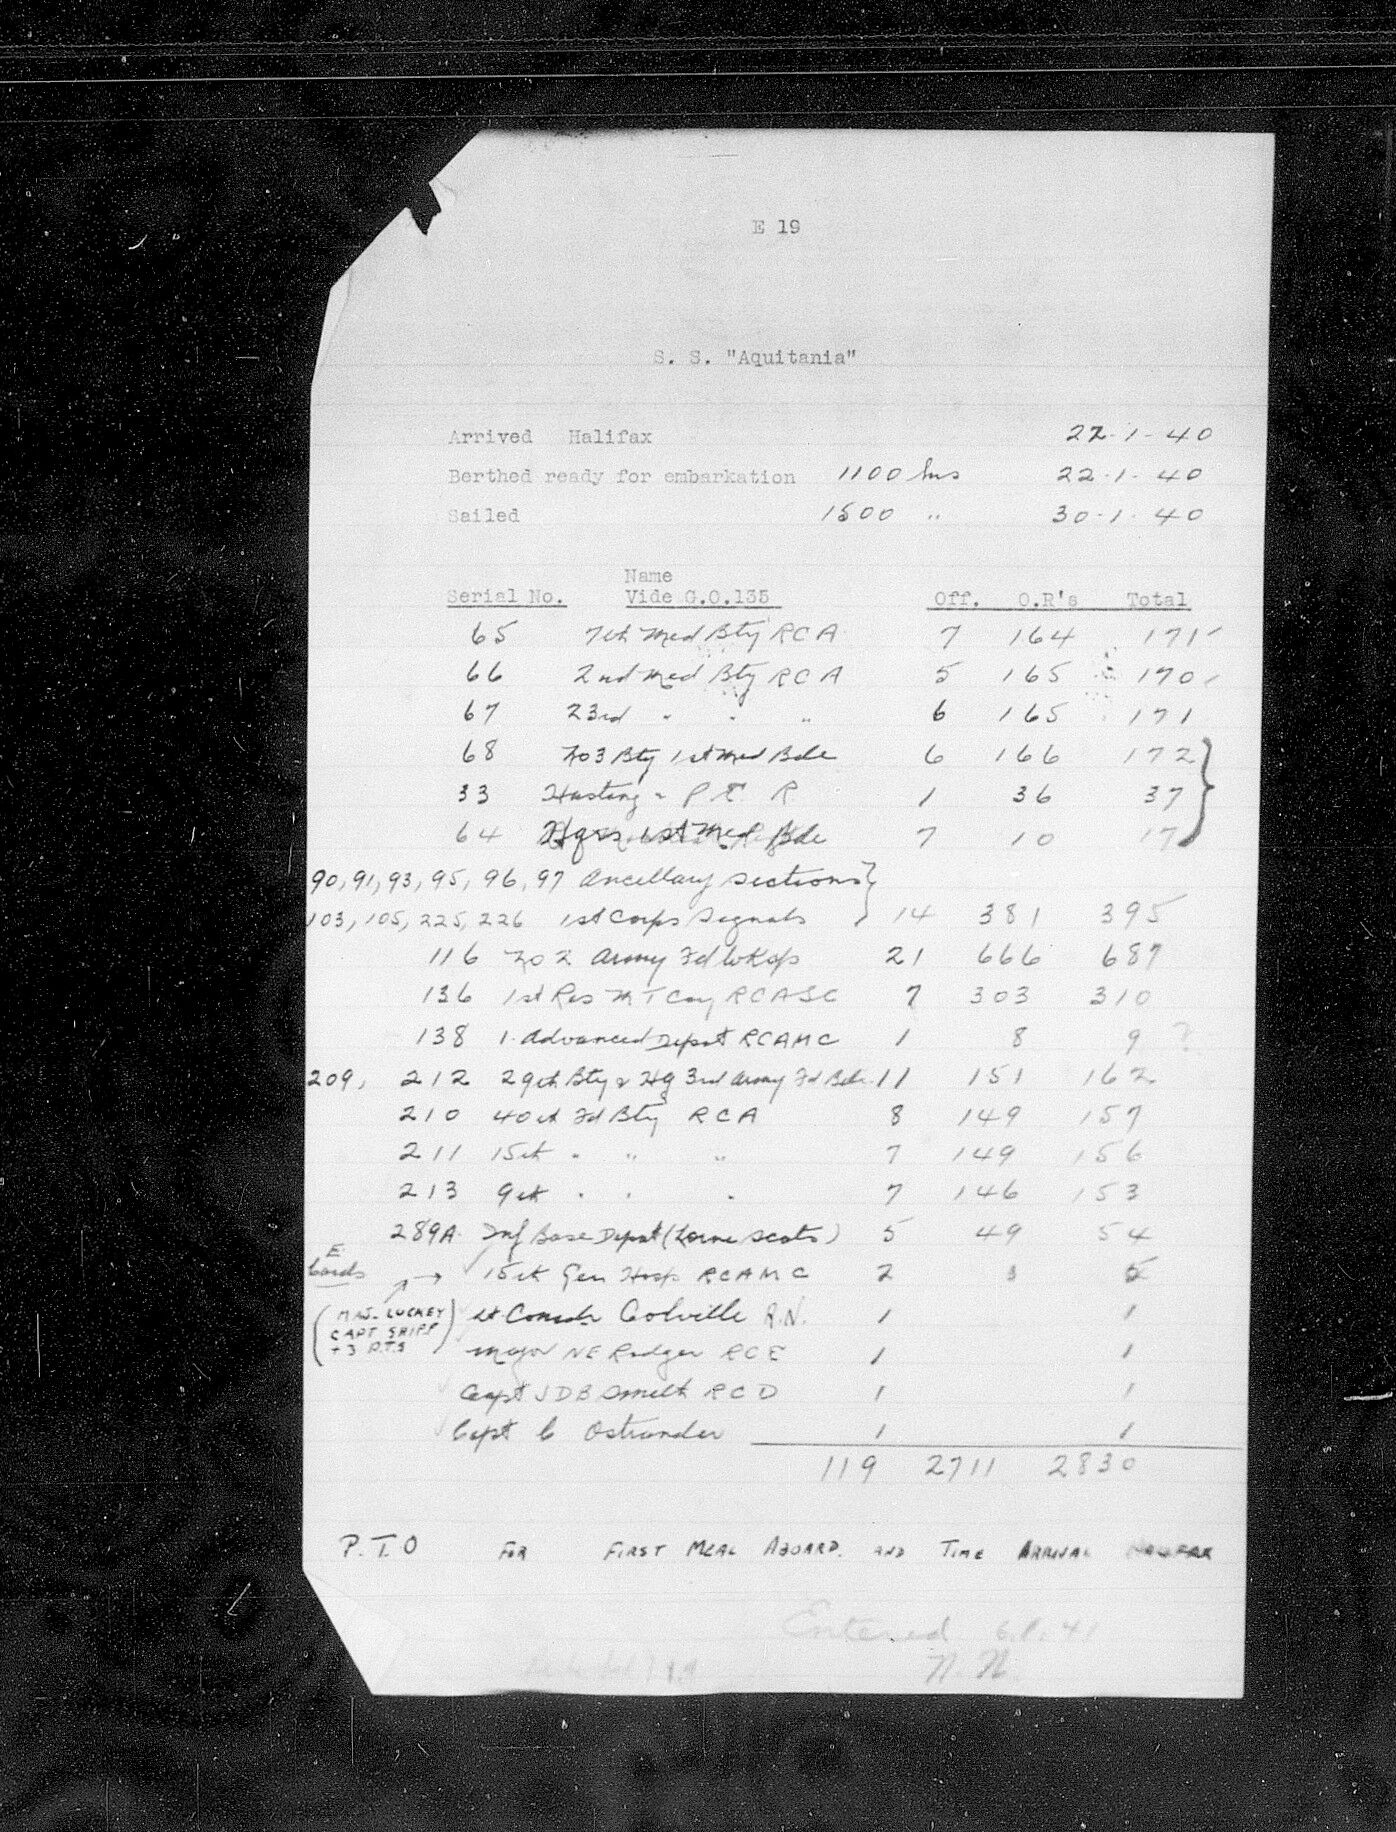 E 19
S. S. "Aquitania"
Arrived Halifax 22-1-40
Berthed ready for embarkation 1100 hrs 22-1-40
Sailed 1500 " 30-1-40
Name
Serial No. Vide G.O.135 Off. O.R's Total
65 7th Med Bty RCA 7 164 171
66 2nd Med Bty RCA 5 165 170
67 23rd " " " 6 165 171
68 No 3 Bty 1st Med Bde 6 166 172 }
33 Hasting & P.E. R 1 36 37
64 Hqrs 1st Med Bde 7 10 17
90, 91, 93, 95, 96, 97 Ancillary Sections }
103, 105, 225, 226 1st Corps Signals 14 381 395
116 No 2 Army Fd Wksp 21 666 687
136 1st Res MT Coy RCASC 7 303 310
138 1. Advanced Depot RCAMC 1 8 9 ?
209, 212 29th Bty & HQ 3rd Army Fd Bde 11 151 162
210 40th Fd Bty RCA 8 149 157
211 15th " " " 7 149 156
213 9th " " " 7 146 153
289A Inf Base Depot (Lorne Scots) 5 49 54
E
Cards → 15th Gen Hosp RCAMC 2 3 5
(MAJ. LUCKEY Lt Comdr Colville R.N. 1 1
CAPT SHIPP
+ 3 O.R.S) Major NE Rodger RCE 1 1
Capt JDB Smith RCD 1 1
Capt C Ostrander 1 1
119 2711 2830
P.T.O FOR FIRST MEAL ABOARD. AND TIME ARRIVAL HALIFAX
Entered 6.1.41
N. N.